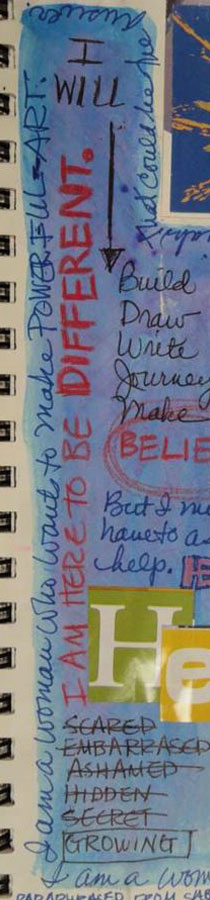 Answer.
I
WILL
That could be the
Build
Draw
Write
Journey
Make
BELIE
But I
have to
help.
HE
He
SCARED
EMBARRASED
ASHAMED
HIDDEN
SECRET
GROWING
I am a woman who want to make POWERFUL ART.
I AM HERE TO BE DIFFERENT.
I am a wom
PARAPHRASED FROM